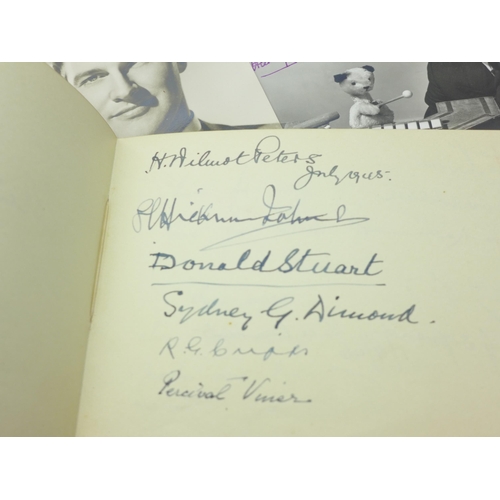 H. Wilmot Peters
July 1945.
Donald Stuart
Sydney G. Dimond.
R. G.
Percival Viner